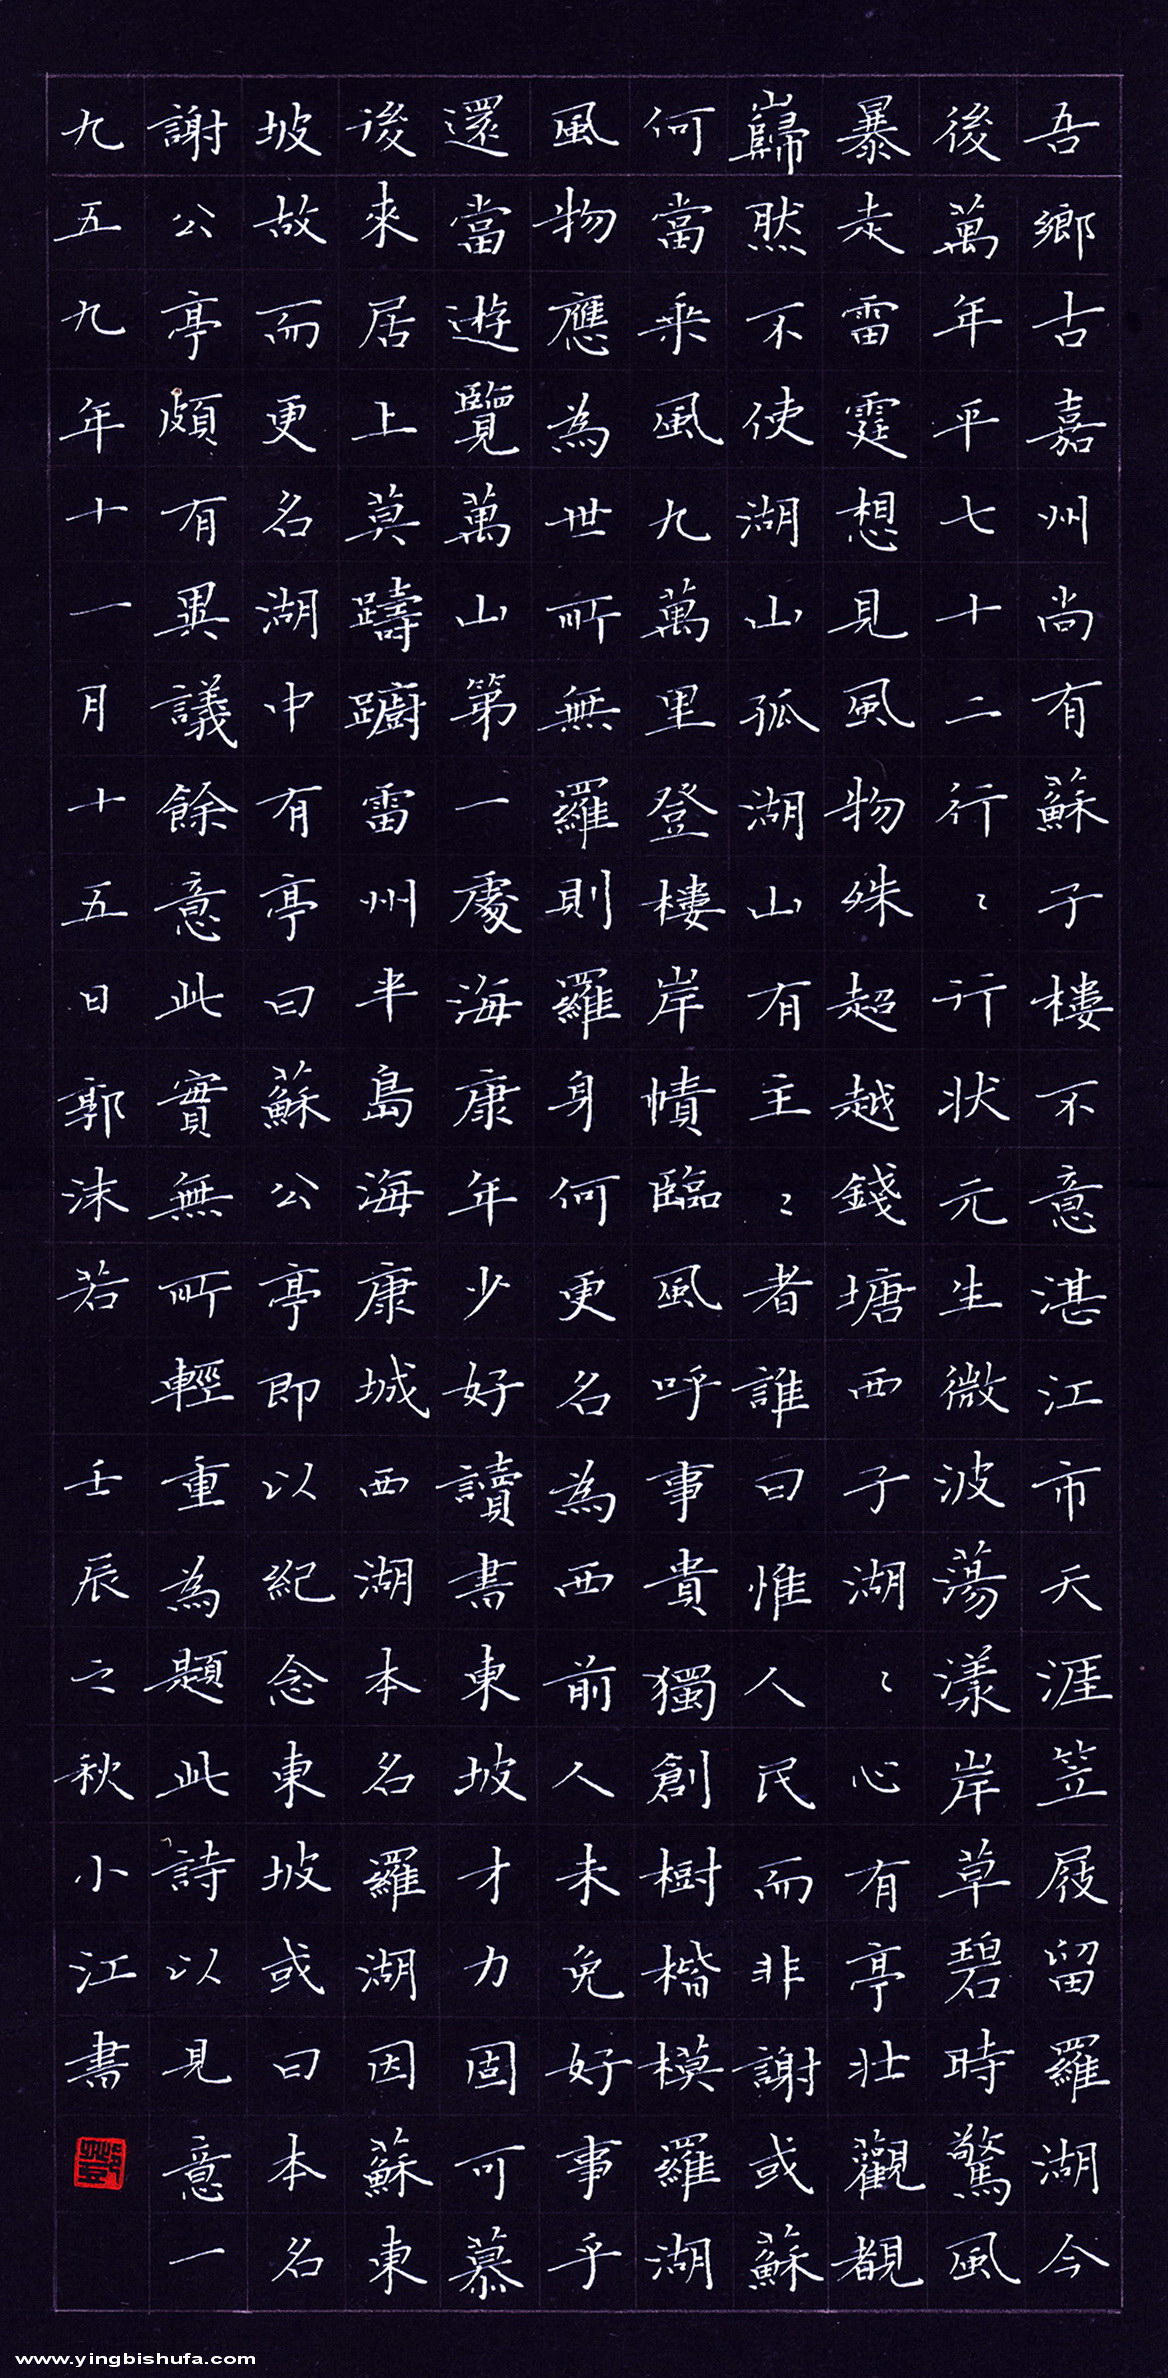 吾鄉古嘉州尚有蘇子樓不意湛江市天涯笠屐留羅湖今
後萬年平七十二行〻行状元生微波蕩漾岸草碧時驚風
暴走雷霆想見風物殊超越錢塘西子湖〻心有亭壮觀覩
巋然不使湖山孤湖山有主〻者誰曰惟人民而非謝或蘇
何當乘風九萬里登樓岸幘臨風呼事貴獨創樹楷模羅湖
風物應為世所無羅則羅身何更名為西前人未免好事乎
還當遊覽萬山第一處海康年少好讀書東坡才力固可慕
後來居上莫躊躕雷州半島海康城西湖本名羅湖因蘇東
坡故而更名湖中有亭曰蘇公亭即以紀念東坡或曰本名
謝公亭頗有異議餘意此實無所輕重為題此詩以見意一
九五九年十一月十五日郭沫若 壬辰之秋小江書
www.yingbishufa.com